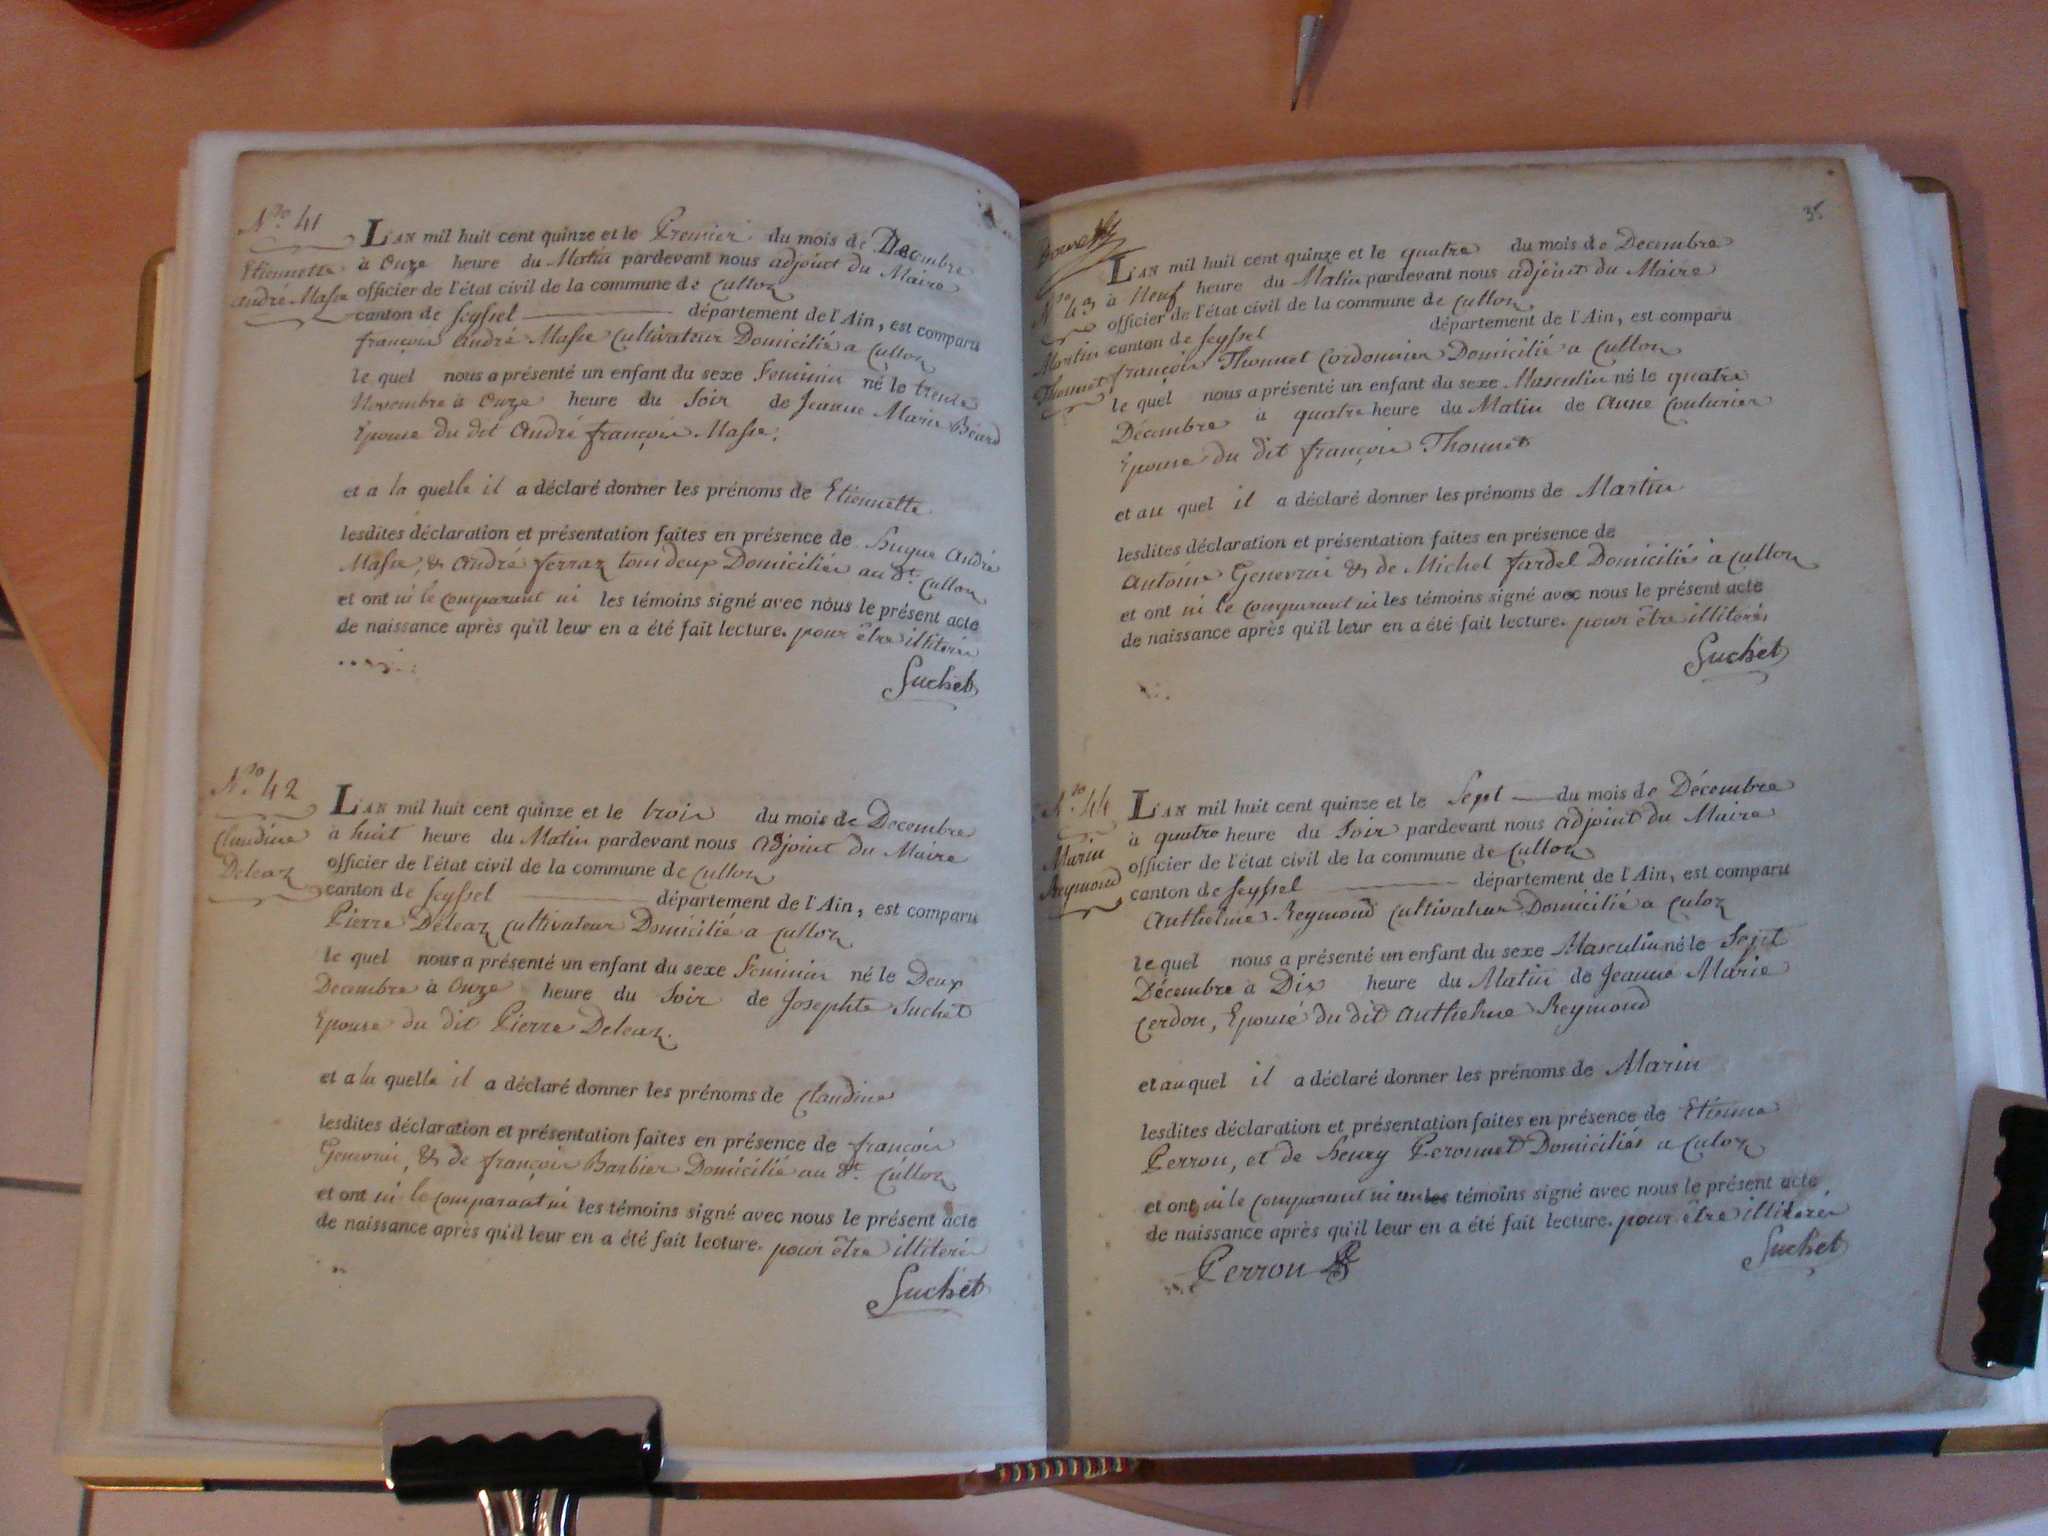 N.ro 41
Etiennette
André Masse
L'AN mil huit cent quinze et le Premier du mois de Decembre
à Onze heure du Matin pardevant nous adjoint du Maire
officier de l'état civil de la commune de Culloz
canton de Seyssel département de l'Ain, est comparu
françois André Masse Cultivateur Domicilié a Culloz
le quel nous a présenté un enfant du sexe Feminin né le trente
Novembre à Onze heure du Soir de Jeanne Marie Béard
Epouse du dit André françois Masse,
et a la quelle il a déclaré donner les prénoms de Etiennette
lesdites déclaration et présentation faites en présence de Hugue André
Masse, & André ferraz tous deux Domiciliés au dt. Culloz
et ont ni le comparant ni les témoins signé avec nous le présent acte
de naissance après qu'il leur en a été fait lecture. pour être illitérés
Suchet
N.ro 42
Claudine
Deleaz
L'AN mil huit cent quinze et le trois du mois de Decembre
à huit heure du Matin pardevant nous adjoint du Maire
officier de l'état civil de la commune de Culloz
canton de Seyssel département de l'Ain, est comparu
Pierre Deleaz Cultivateur Domicilié a Culloz
le quel nous a présenté un enfant du sexe Feminin né le Deux
Decembre à Onze heure du Soir de Josephte Suchet
Epouse du dit Pierre Deleaz.
et a la quelle il a déclaré donner les prénoms de Claudine
lesdites déclaration et présentation faites en présence de françois
Genevrai, & de françois Barbier Domicilié au dt. Culloz
et ont ni le comparant ni les témoins signé avec nous le présent acte
de naissance après qu'il leur en a été fait lecture. pour être illiterés
Suchet
35
N.ro 43
Martin
Thonnet
L'AN mil huit cent quinze et le quatre du mois de Decembre
à Neuf heure du Matin pardevant nous adjoint du Maire
officier de l'état civil de la commune de Culloz
canton de Seyssel département de l'Ain, est comparu
françois Thonnet Cordonnier Domicilié a Culloz
le quel nous a présenté un enfant du sexe Masculin né le quatre
Décembre à quatre heure du Matin de Anne Couturier
Epouse du dit françois Thonnet
et au quel il a déclaré donner les prénoms de Martin
lesdites déclaration et présentation faites en présence de
Antoine Genevrai & de Michel fardel Domiciliés à Culloz
et ont ni le comparant ni les témoins signé avec nous le présent acte
de naissance après qu'il leur en a été fait lecture. pour être illiterés
Suchet
N.ro 44
Marin
Reymond
L'AN mil huit cent quinze et le Sept du mois de Décembre
à quatre heure du Soir pardevant nous adjoint du Maire
officier de l'état civil de la commune de Culloz
canton de Seyssel département de l'Ain, est comparu
Anthelme Reymond Cultivateur Domicilié a Culoz
le quel nous a présenté un enfant du sexe Masculin né le Sept
Décembre à Dix heure du Matin de Jeanne Marie
Cerdon, Epouse du dit Anthelme Reymond
et au quel il a déclaré donner les prénoms de Marin
lesdites déclaration et présentation faites en présence de Etienne
Perron, et de henry Peronnet Domiciliés a Culoz
et ont ni le comparant ni les témoins signé avec nous le présent acte
de naissance après qu'il leur en a été fait lecture. pour être illiterés
Perron
Suchet